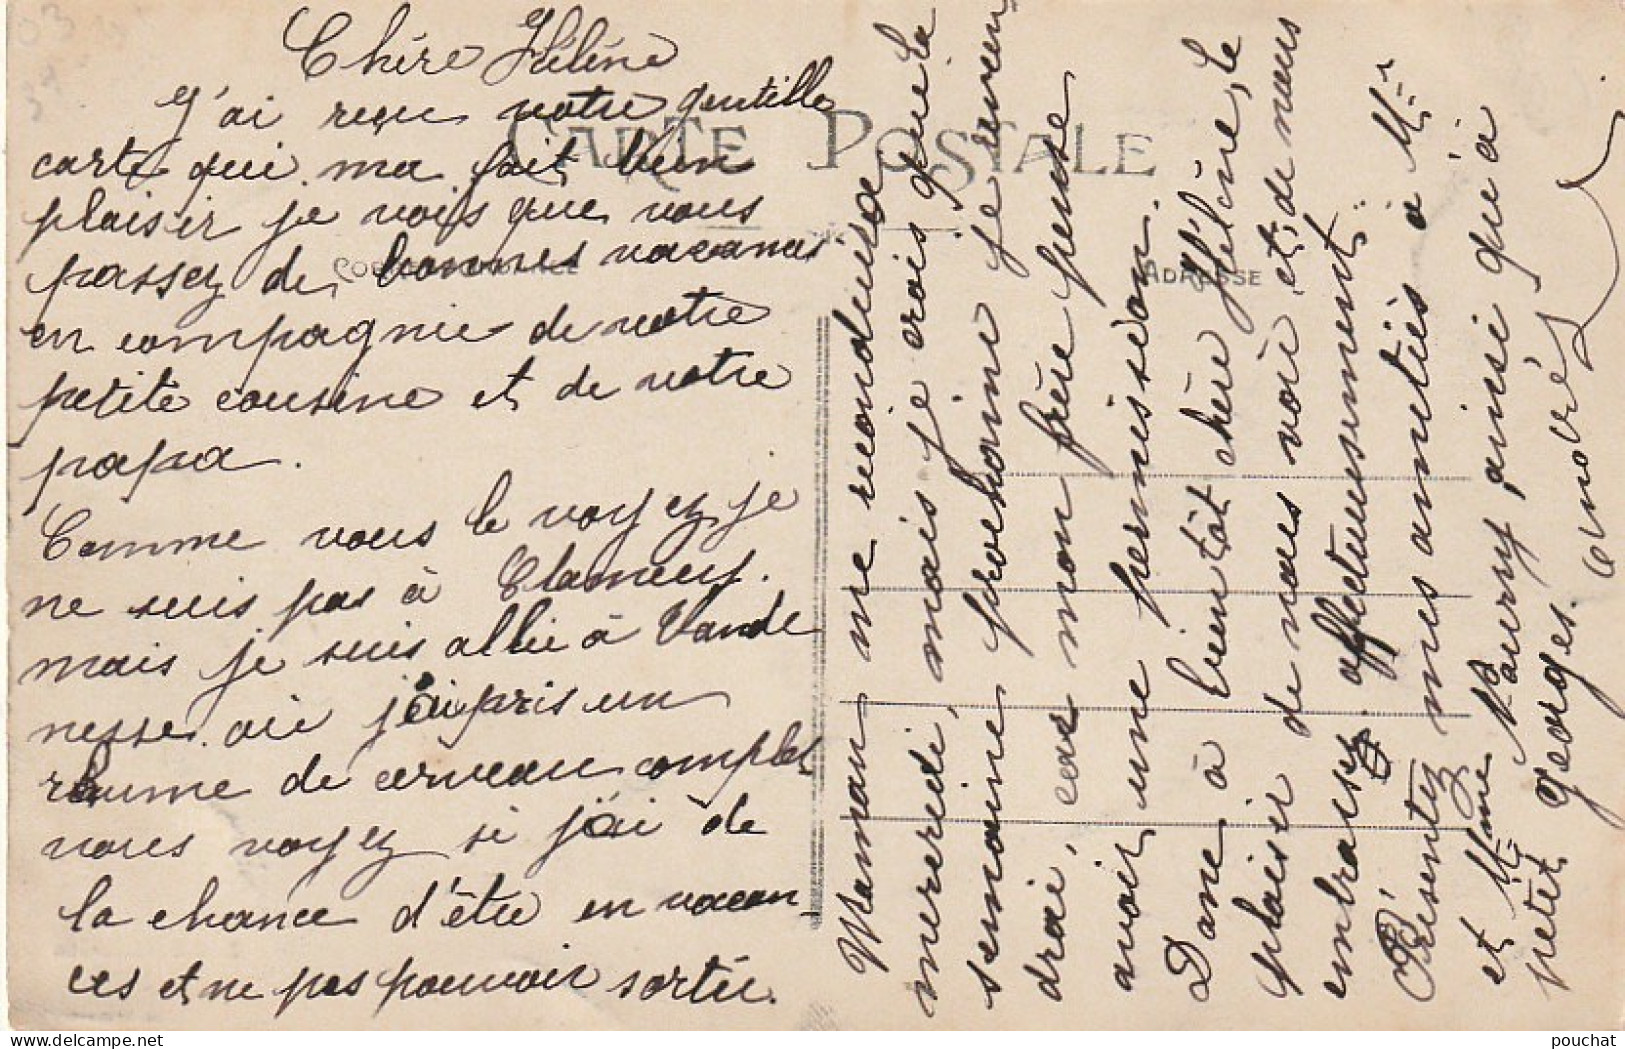 CARTE POSTALE
CORRESPONDANCE
ADRESSE
Chère Hélène
J'ai reçu votre gentille
carte qui ma fait bien
plaisir je vois que vous
passez de bonnes vacances
en compagnie de votre
petite cousine et de votre
papa.
Comme vous le voyez je
ne suis pas à Clamecy.
mais je suis allée à Vande
nesse où j'ai pris un
rhume de cerveau complet
vous voyez si j'ai de
la chance d'être en vacan
ces et ne pas pouvoir sortir.
Maman me reconduira
mercredi, mais je crois que la
semaine prochaine je revien
drai, car mon frère pense
avoir une permission.
Donc à bientôt chère Hélène, le
plaisir de vous voir et de vous
embrasser affectueusement.
Présentez mes amitiés à Mr
et Mme Maurry, ainsi qu'à
petit Georges.
pouchat